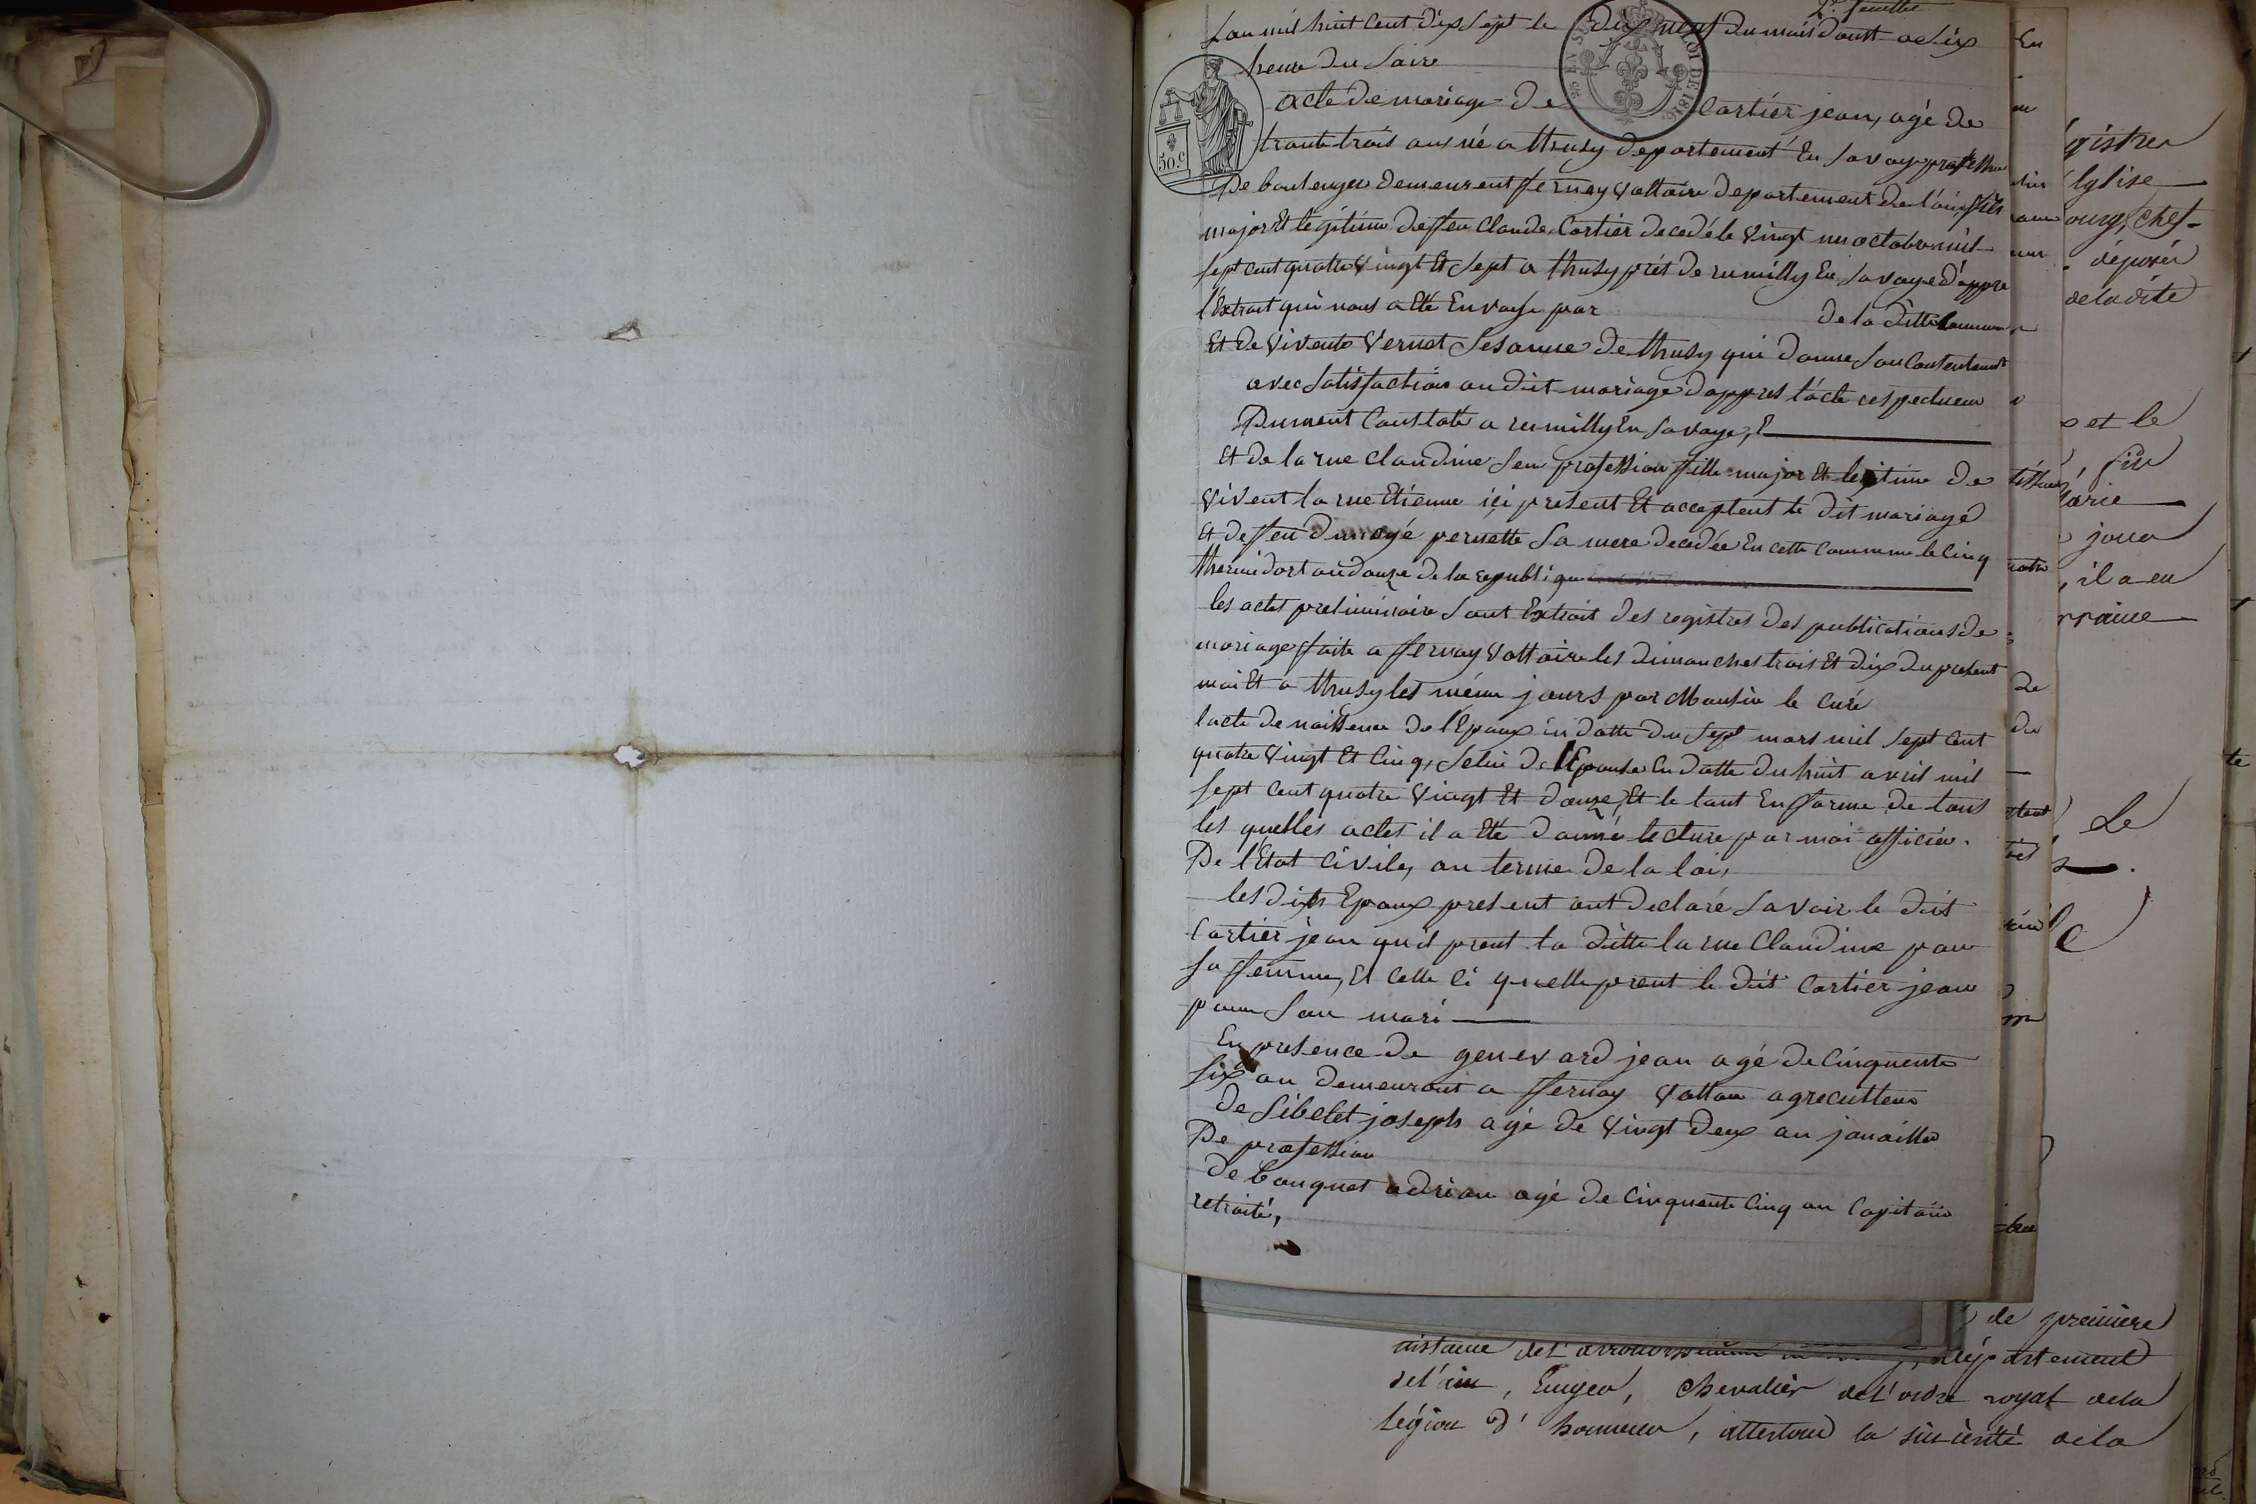 2e feuille
Lan mil huit cent dix sept le dix neuf du mois doust a dix
heure du Soire
acte de mariage de Cartier jean, agé de
trante trois ans né a thusy departement En Savoye professhon
De boulenger demeurent fernay Voltaire departement de l'ain, fils
major Et legitime deffeu Claude Cartier decedé le Vingt un octobre mil
sept cent quatre Vingt Et Sept a thusy prés de rumilly En Savoye d'appre
l'Extrait qui nous a Eté Envoye par de la ditte Commune
Et de Vivente Vernet Sesanne de thusy qui donne Son Contentement
avec Satisfaction au dit mariage dappres l'acte respectueux
Dument Constaté a rumilly En Savoye,
Et de la rue Claudine Sen profession fille major Et legitime de
Vivent la rue Etienne içi present Et acceptent le dit mariage
Et deffeu pernette Sa mere decedée En cette Commune le Cinq
thermidort an douze de la republique
les actes preliminaire Sont Extrait des registres des publications de
mariage faite a fernay Voltaire les dimanches trois Et dix du present
mois Et a thusy les méme jours par Monsieu le Curé
lacte de naissence de l'Epoux En datte du Sept mars mil Sept Cent
quatre Vingt Et Cinq, Selui de l'Epouse En datte du huit avril mil
Sept Cent quatre Vingt Et douze, Et le tout En fforme de tous
les quelles actes il a Eté donné lecture par moi officier
De l'Etat Civile, au terme de la loi,
les dits Epoux present ont declaré Savoir le dit
Cartier jean quil prent la ditte la rue Claudine pour
Sa femme, Et Celle Ci quelle prent le dit Cartier jean
pour Son mari
En presence de genevard jean agé de Cinquente
Six an demeurant a fernay Voltaire agreculteur
de Sibelet joseph agé de Vingt deux an jouaille
De profession
de bouquet adrian agé de Cinquente Cinq an Capitaine
retraité,
50.c
LOI DE 1816
gistres
Eglise
ourg, chef-
déposés
de la dite
et le
fils
Marie
jour
, il a eu
rraine
Le
de première
instance de l'arrondissement département
de l'ain, chevalier de l'ordre royal de la
légion d'honneur, attestons la sincérité de la